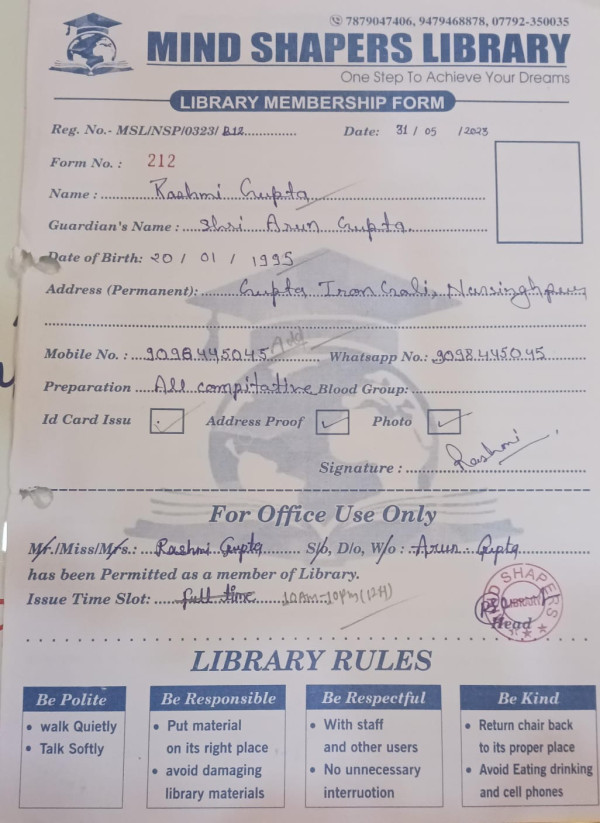 7879047406, 9479468878, 07792-350035
MIND SHAPERS LIBRARY
One Step To Achieve Your Dreams
LIBRARY MEMBERSHIP FORM
Reg. No.- MSL/NSP/0323/ 212 Date: 31 / 05 / 2023
Form No. : 212
Name : Rashmi Gupta
Guardian's Name : Shri Arun Gupta
Date of Birth: 20 / 01 / 1995
Address (Permanent): Gupta Iron Gali, Narsinghpur
Add
Mobile No. : 9098445045 Whatsapp No.: 9098445045
Preparation All compitative Blood Group:
Id Card Issu Address Proof Photo
Signature : Rashmi
For Office Use Only
Mr./Miss/Mrs.: Rashmi Gupta S/o, D/o, W/o : Arun Gupta
has been Permitted as a member of Library.
Issue Time Slot: full time 10AM-10PM (12H)
MIND SHAPERS
LIBRARY
Head
LIBRARY RULES
Be Polite
• walk Quietly
• Talk Softly
Be Responsible
• Put material
on its right place
• avoid damaging
library materials
Be Respectful
• With staff
and other users
• No unnecessary
interruotion
Be Kind
• Return chair back
to its proper place
• Avoid Eating drinking
and cell phones